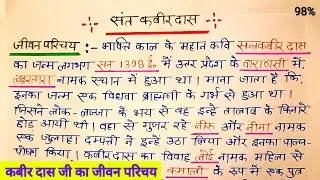 98%
संत कबीर दास
जीवन परिचय :- भाक्ति काल के महान कवि सन्त कबीर दास
का जन्म लगभग सन 1398 ई० में उत्तर प्रदेश के वाराणसी में,
लहरतारा नामक स्थान में हुआ था। माना जाता है कि
इनका जन्म एक विधवा ब्राह्मणी के गर्भ से हुआ था।
जिसने लोक-लज्जा के भय से वह इन्हे तालाब के किनारे
छोड़ आयी थी। वहा से गुजर रहे नीरू और नीमा नामक
एक जुलाहा दम्पत्ती ने इन्हे उठा लिया और इनका पालन-
पोषण किया। कबीरदास का विवाह लोई नामक महिला से
कमाली के रूप में एक पुत्र
कबीर दास जी का जीवन परिचय